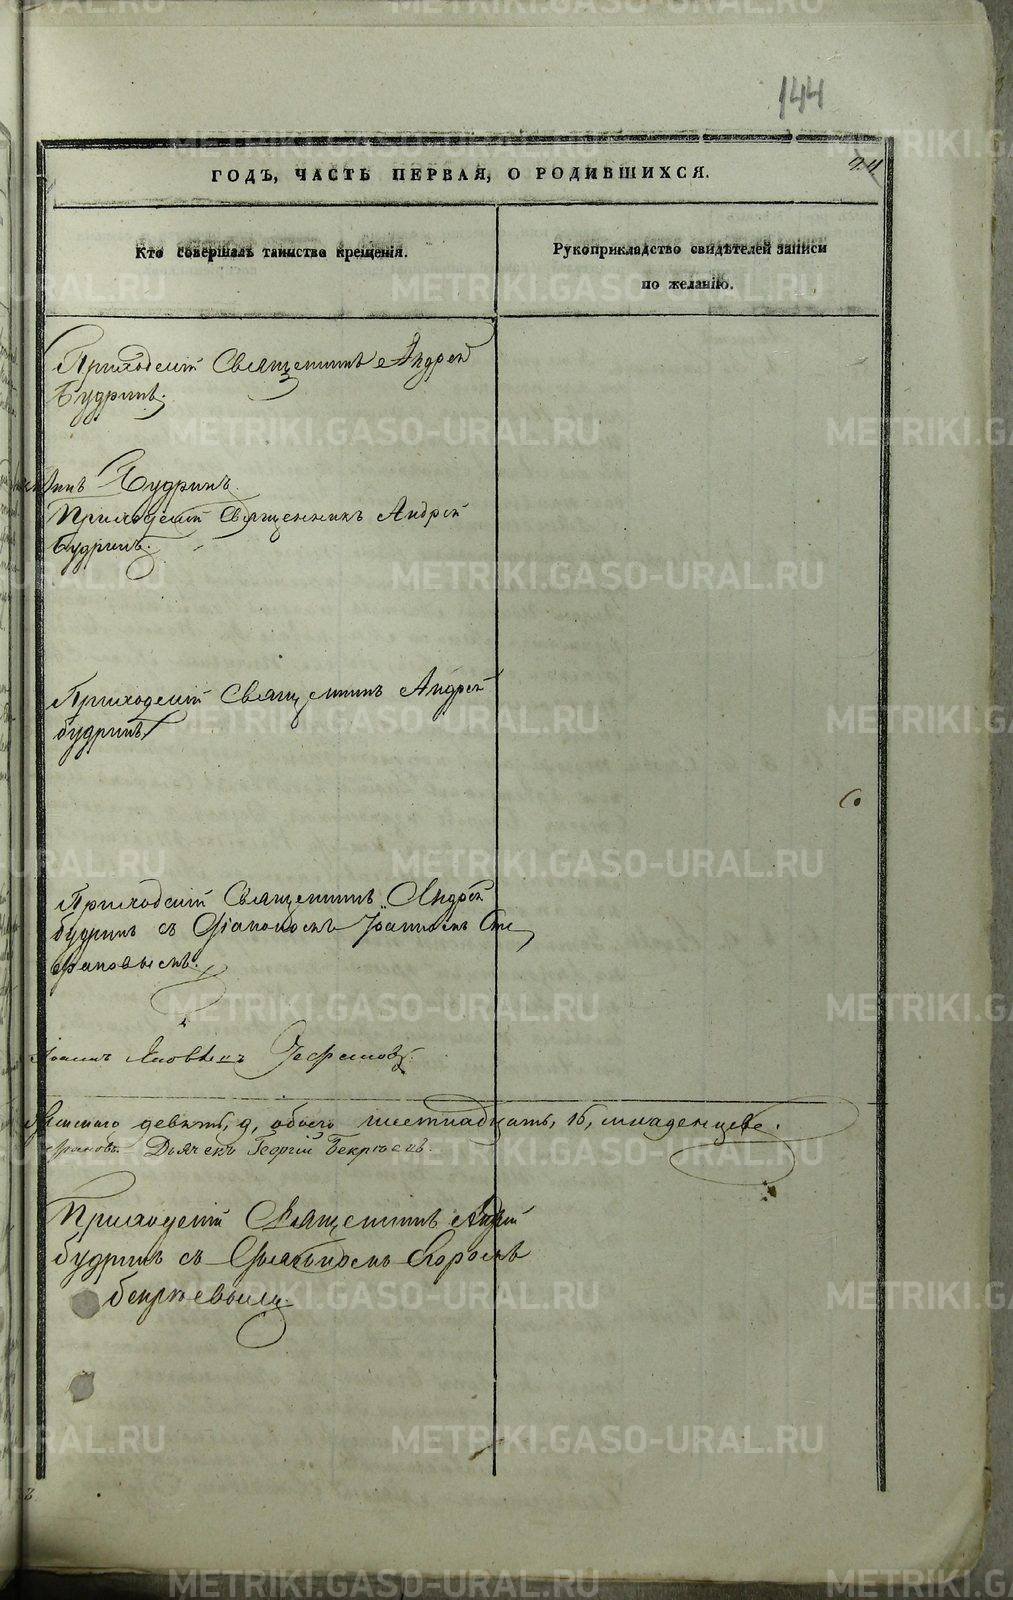 144
ГОДЪ, ЧАСТЬ ПЕРВАЯ, О РОДИВШИХСЯ.
Кто совершалъ таинство крещенія.
Рукоприкладство свидѣтелей записи
по желанію.
Приходскій Священникъ Андрей
Будринъ.
Будринъ.
Приходскій Священникъ Андрей
Будринъ.
Приходскій Священникъ Андрей
Будринъ
Приходскій Священникъ Андрей
Будринъ съ Діакономъ Іоанномъ Сте
фановымъ.
Іоаннъ Яковлевъ Стефановъ.
Женскаго девять, 9, обоего шестнадцать, 16, младенцевъ.
Дьячекъ Георгій Бекрѣевъ.
Приходскій Священникъ Андрей
Будринъ съ Дьячкомъ Егоромъ
Бекрѣевымъ.
METRIKI.GASO-URAL.RU